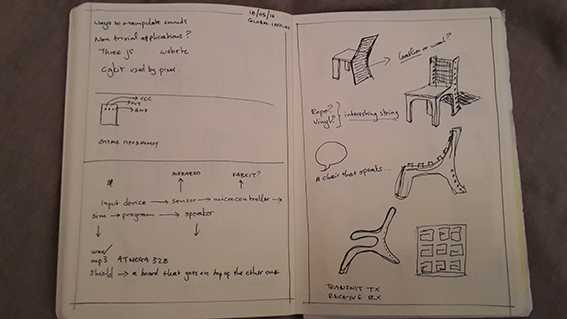 18/05/16
GLOBAL LECTURE
Ways to manipulate sounds
Non trivial applications?
Three js webrtc
cgkit used by pixar
VCC
OUT
GND
INFRARED FABKIT?
Input device → sensor → microcontroller →
program → speaker
wav/
mp3 ATMEGA 328
Shield → a board that goes on top of the other one
or wood?
Rope?
Vinyl?
interesting string
A chair that speaks...
TRANSMIT TX
RECEIVE RX